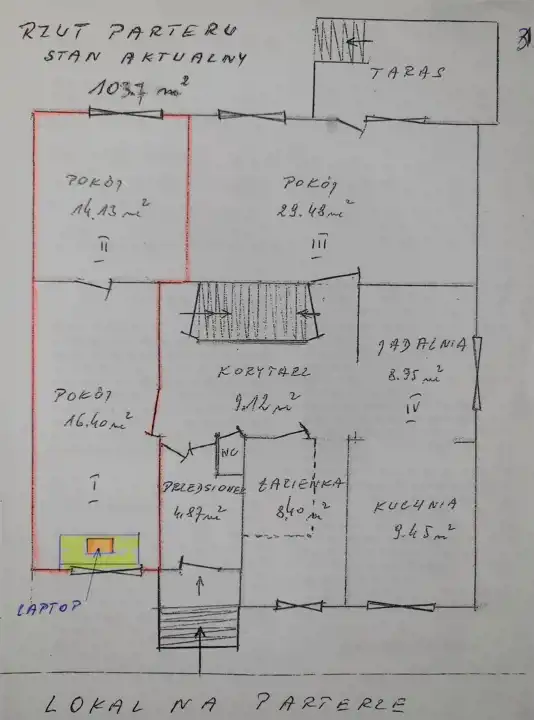 RZUT PARTERU
STAN AKTUALNY
103.7 m²
TARAS
POKÓJ
14.13 m²
II
POKÓJ
29.48 m²
III
POKÓJ
16.40 m²
I
KORYTARZ
9.12 m²
JADALNIA
8.95 m²
IV
WC
PRZEDSIONEK
4.87 m²
ŁAZIENKA
8,40 m²
KUCHNIA
9.45 m²
LAPTOP
LOKAL NA PARTERZE